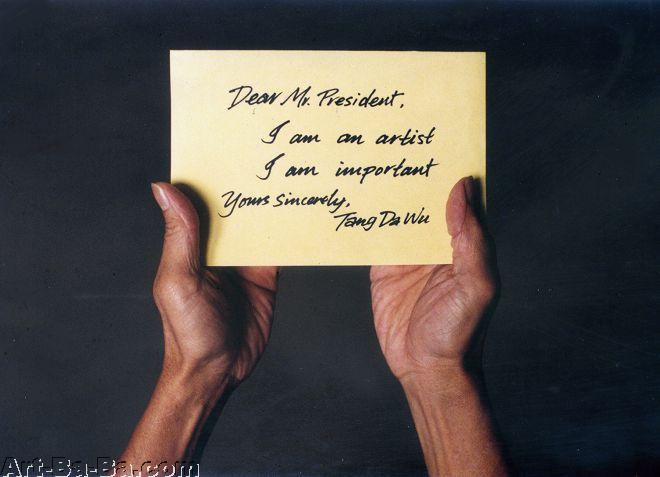 Dear Mr. President,
I am an artist
I am important
Yours Sincerely,
Tang Da Wu
Art-Ba-Ba.com